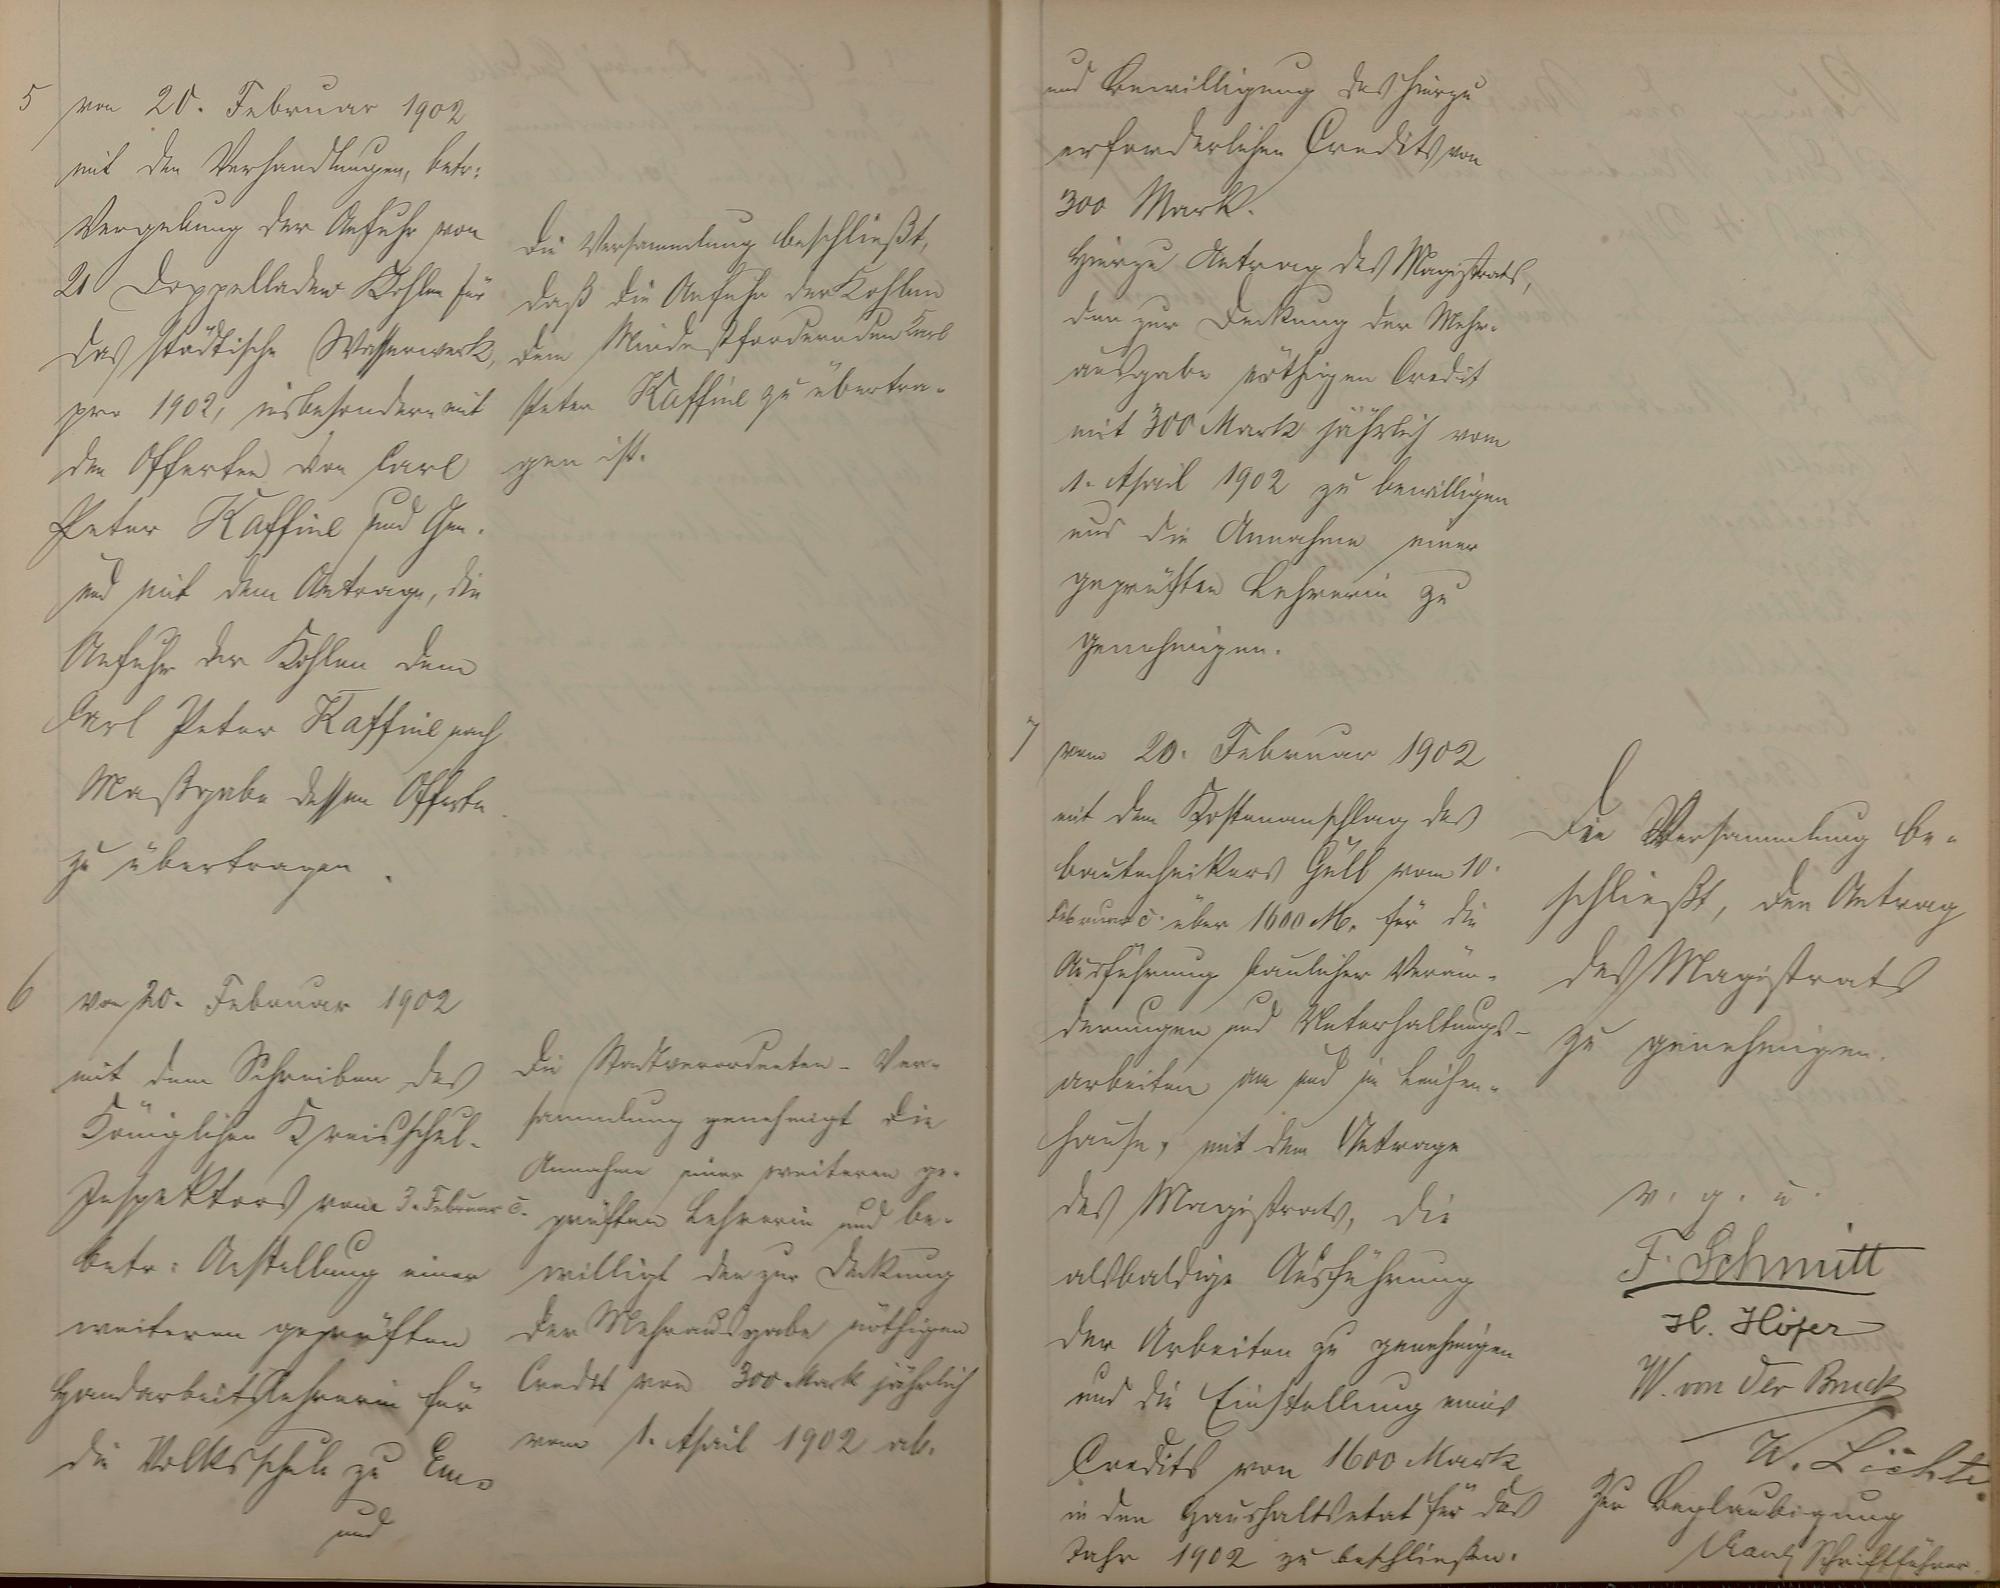 5 von 20. Februar 1902
mit den Verhandlungen, betr:
Vergebung der Anfuhr von
21 Doppelladen Kohlen für
das städtische Wasserwerk,
pro 1902, insbesondere mit
den Offerten von Carl
Peter Kaffine und Gen.
und mit dem Antrage, die
Anfuhr der Kohlen dem
Carl Peter Kaffine nach
Maßgabe dessen Offerte
zu übertragen.
Die Versammlung beschließt,
daß die Anfuhr der Kohlen
dem Mindestfordernden Carl
Peter Kaffine zu übertra-
gen ist.
6 von 20. Februar 1902
mit dem Schreiben des
Königlichen Kreisschul-
Inspektors vom 3. Februar c.
betr: Anstellung einer
weiteren geprüften
Handarbeitslehrerin für
die Volksschule zu Ems
und
Die Stadtverordneten-Ver-
sammlung genehmigt die
Annahme einer weiteren ge-
prüften Lehrerin und be-
willigt den zur Deckung
der Mehrausgabe nöthigen
Credit von 300 Mark jährlich
vom 1. April 1902 ab.
und Bewilligung des hierzu
erforderlichen Credits von
300 Mark.
Hierzu Antrag des Magistrats,
den zur Deckung der Mehr-
ausgabe nöthigen Credit
mit 300 Mark jährlich vom
1. April 1902 zu bewilligen
und die Annahme einer
geprüften Lehrerin zu
genehmigen.
7 vom 20. Februar 1902
mit dem Kostenanschlag des
Bautechnikers Güll vom 10.
Februar c. über 1600 M. für die
Ausführung baulicher Verän-
derungen und Unterhaltungs-
arbeiten am und im Leichen-
hause, mit dem Antrage
des Magistrats, die
alsbaldige Ausführung
der Arbeiten zu genehmigen
und die Einstellung eines
Credits von 1600 Mark
in den Haushaltsetat für das
Jahr 1902 zu beschließen.
Die Versammlung be-
schließt, den Antrag
des Magistrats
zu genehmigen.
v. g. u.
F. Schmitt
H. Höfer
W. von der Bruck
W. Lüchte
Zur Beglaubigung
Schriftführer.